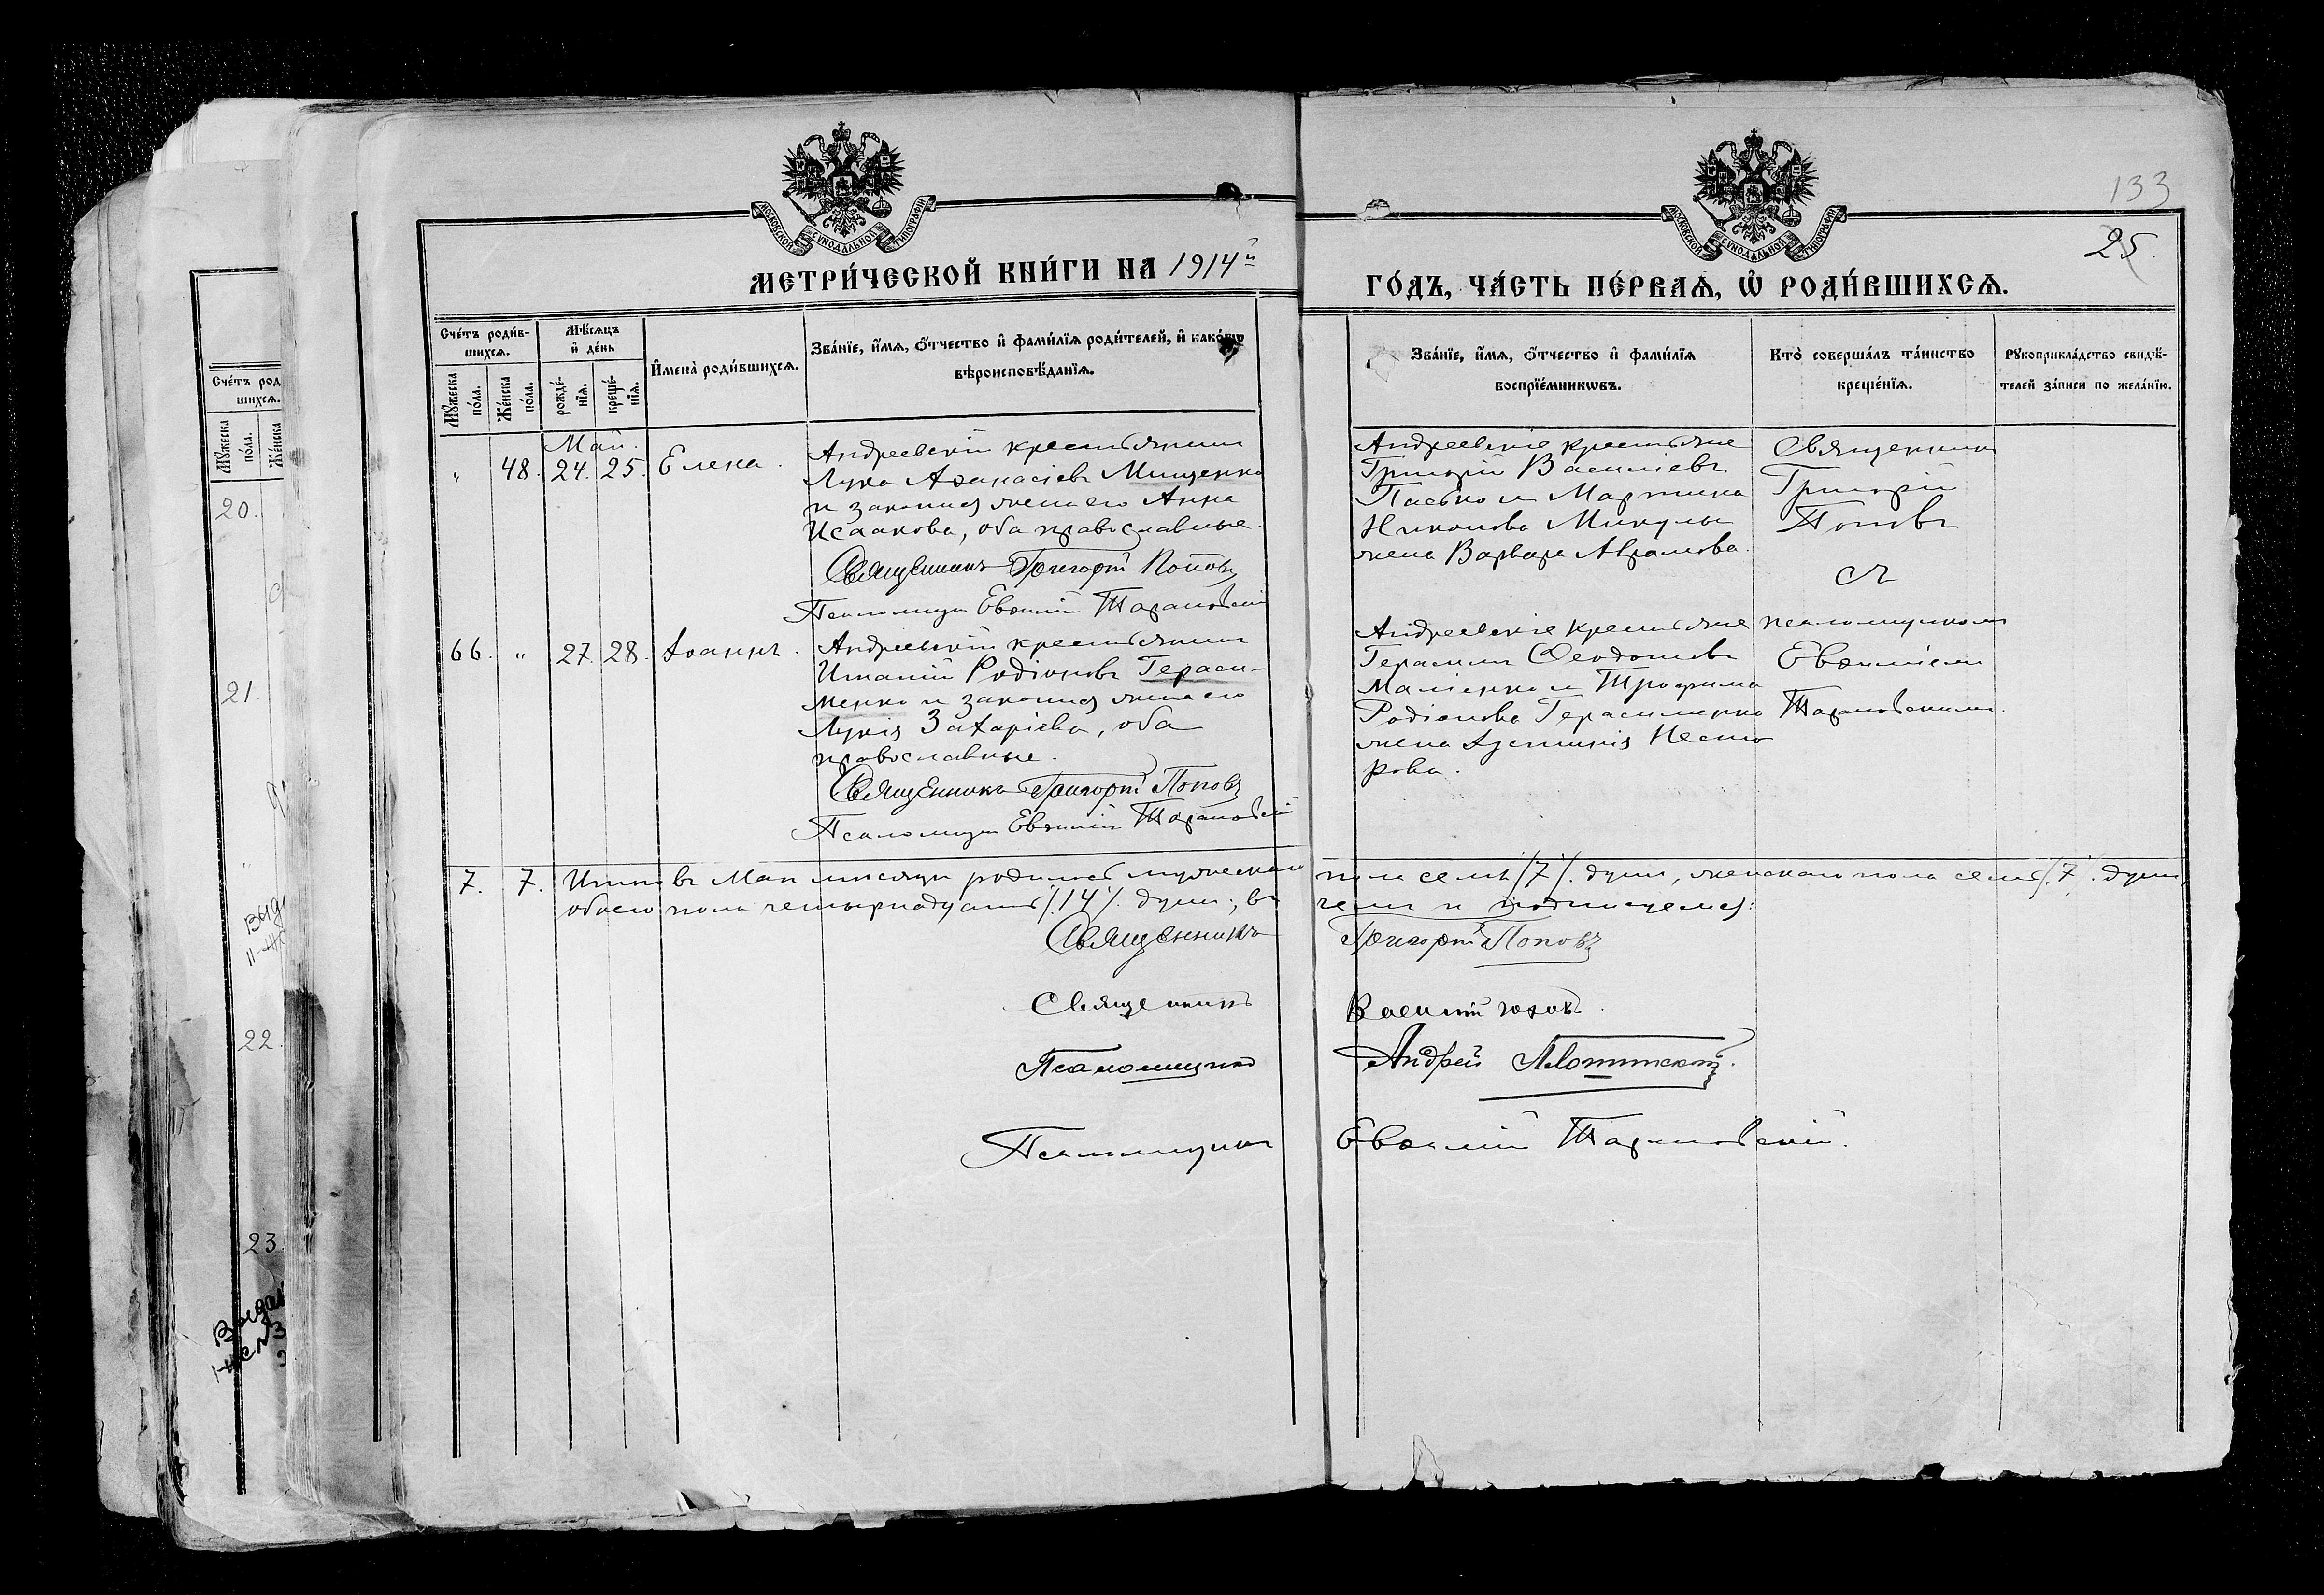 133
25.
МОСКОВСКОЙ СУНОДАЛЬНОЙ ТИПОГРАФІИ
МОСКОВСКОЙ СУНОДАЛЬНОЙ ТИПОГРАФІИ
МЕТРИ́ЧЕСКОЙ КНИ́ГИ НА 1914й
ГО́ДЪ, ЧА́СТЬ ПЕ́РВАѦ, Ѡ҆ РОДИ́ВШИХСѦ.
Сче́тъ роди́в-
шихсѧ.
Мѣ́сѧцъ
и҆ де́нь
Мꙋ́жеска
по́ла.
Же́нска
по́ла.
рожде́-
нїѧ.
креще́-
нїѧ.
И҆мена̀ роди́вшихсѧ.
Зва́нїе, и҆́мѧ, ѻ҆́тчество и҆ фами́лїѧ роди́телей, и҆ како́гѡ
вѣроисповѣ́данїѧ.
Зва́нїе, и҆́мѧ, ѻ҆́тчество и҆ фами́лїѧ
воспрїе́мникѡвъ.
Кто̀ соверша́лъ та́инство
креще́нїѧ.
Рꙋкоприкла́дство свидѣ́-
телей за́писи по жела́нїю.
Май.
„ 48. 24. 25. Елена.
Андреевскій крестьянинъ
Лука Аѳанасіевъ Мищенко
и законная жена его Анна
Исаакова, оба православные.
Священникъ Григорій Поповъ
Псаломщикъ Евѳимій Тарановскій
Андреевскіе крестьяне
Григорій Василіевъ
Пасько и Мартина
Никонова Микулы
жена Варвара Аврамова.
Священникъ
Григорій
Поповъ
съ
псаломщикомъ
Евѳиміемъ
Тарановскимъ.
66. „ 27. 28. Іоаннъ.
Андреевскій крестьянинъ
Игнатій Родіоновъ Гераси-
менко и законная жена его
Лукія Захаріева, оба
православные.
Священникъ Григорій Поповъ
Псаломщикъ Евѳимій Тарановскій
Андреевскіе крестьяне
Герасимъ Ѳеодотовъ
и Трофима
Родіонова Герасименко
жена Іустинія Несто
рова.
7. 7. Итого въ Маѣ мѣсяцѣ родилось мужескаго пола семь /7/. душъ, женскаго пола семь /.7./ душъ,
обоего пола четырнадцать /.14/. душъ; въ чемъ и подписуемся:
Священникъ Григорій Поповъ
Священникъ Василій
Псаломщикъ Андрей
Псаломщикъ Евѳимій Тарановскій.
Сче́тъ род
шихсѧ.
Мꙋ́жеска
по́ла.
Же́нска
20.
21.
22.
23.